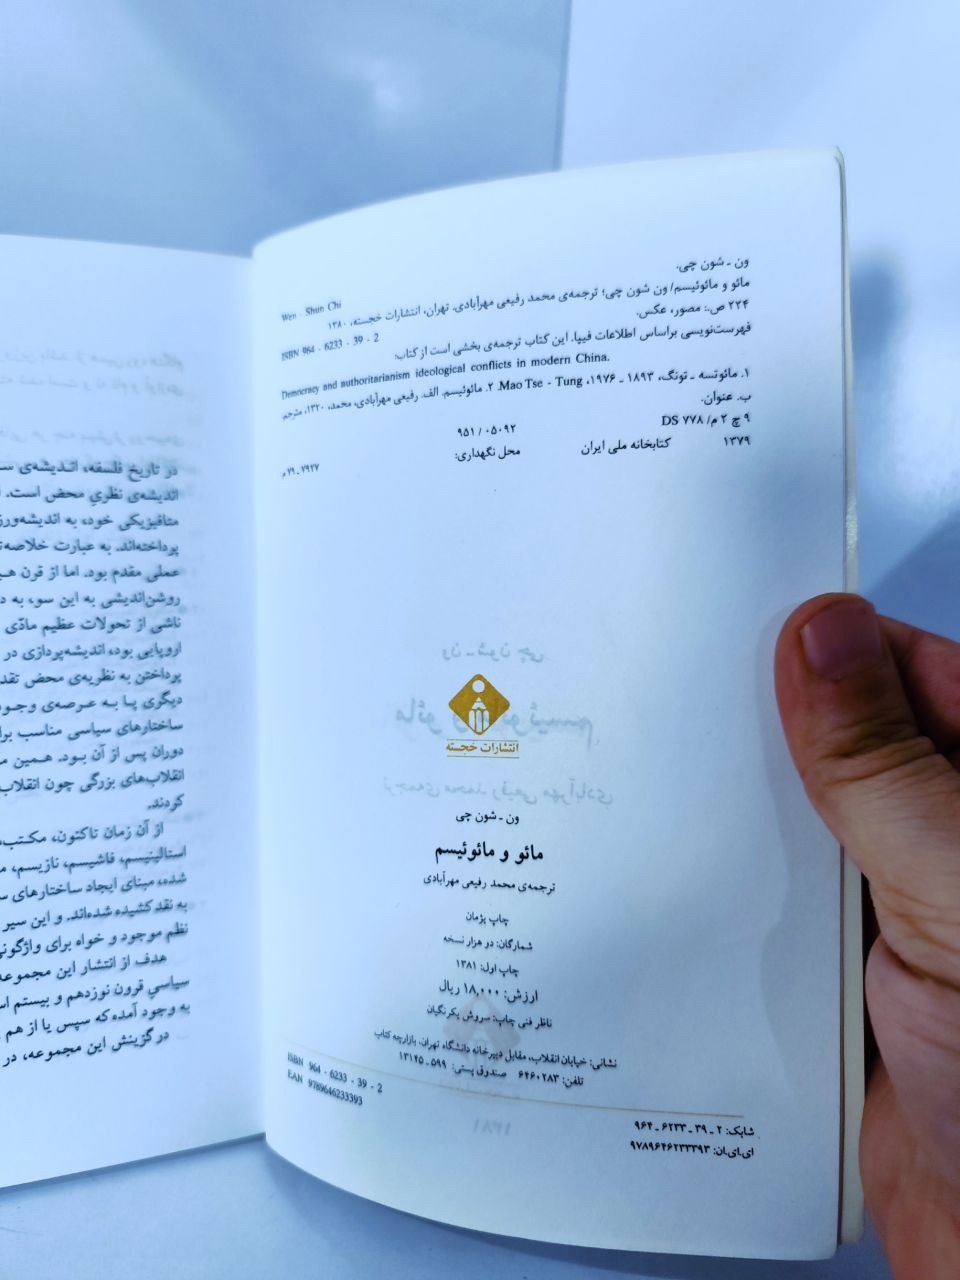 ون ـ شون چی.
Wen - Shun Chi
مائو و مائوئیسم/ ون شون چی؛ ترجمه‌ی محمد رفیعی مهرآبادی. تهران، انتشارات خجسته، ۱۳۸۰
۲۲۴ ص.: مصور، عکس.
ISBN 964 - 6233 - 39 - 2
فهرست‌نویسی براساس اطلاعات فیپا. این کتاب ترجمه‌ی بخشی است از کتاب:
Democracy and authoritarianism ideological conflicts in modern China.
۱. مائوتسه ـ تونگ، ۱۸۹۳ ـ ۱۹۷۶، Mao Tse - Tung. ۲. مائوئیسم. الف. رفیعی مهرآبادی، محمد، ۱۳۲۰، مترجم.
ب. عنوان.
۹ چ ۲ م/ ۷۷۸ DS
۹۵۱/۰۵۰۹۲
۱۳۷۹
کتابخانه ملی ایران
محل نگهداری:
۷۹-۷۹۲۷ م
انتشارات خجسته
ون ـ شون چی
مائو و مائوئیسم
ترجمه‌ی محمد رفیعی مهرآبادی
چاپ پژمان
شمارگان: دو هزار نسخه
چاپ اول: ۱۳۸۱
ارزش: ۱۸,۰۰۰ ریال
ناظر فنی چاپ: سروش یکرنگیان
نشانی: خیابان انقلاب، مقابل دبیرخانه دانشگاه تهران، بازارچه کتاب
تلفن: ۶۴۶۰۲۸۳ صندوق پستی: ۵۹۹ ـ ۱۳۱۴۵
ISBN 964 - 6233 - 39 - 2
EAN 9789646233393
شابک: ۲ ـ ۳۹ ـ ۶۲۳۳ ـ ۹۶۴
ای.ای.ان: ۹۷۸۹۶۴۶۲۳۳۳۹۳
در تاریخ فلسفه، اندیشه‌ی
اندیشه‌ی نظری محض است.
متافیزیکی خود، به
پرداخته‌اند. به عبارت
عملی مقدم بود. اما از قرن
روشن‌اندیشی به این سو، به
ناشی از تحولات عظیم مادّی
اروپایی بود، اندیشه‌پردازی در
پرداختن به نظریه‌ی محض
دیگری پا به عرصه‌ی
ساختارهای سیاسی مناسب
دوران پس از آن بود. همین
انقلاب‌های بزرگی چون انقلاب
کردند.
از آن زمان تاکنون،
استالینیسم، فاشیسم، نازیسم،
شده، مبنای ایجاد ساختارهای
به نقد کشیده شده‌اند. و این سیر
نظم موجود و خواه برای
هدف از انتشار این
سیاسی قرون نوزدهم و بیستم
به وجود آمده که سپس یا از هم
در گزینش این مجموعه، در